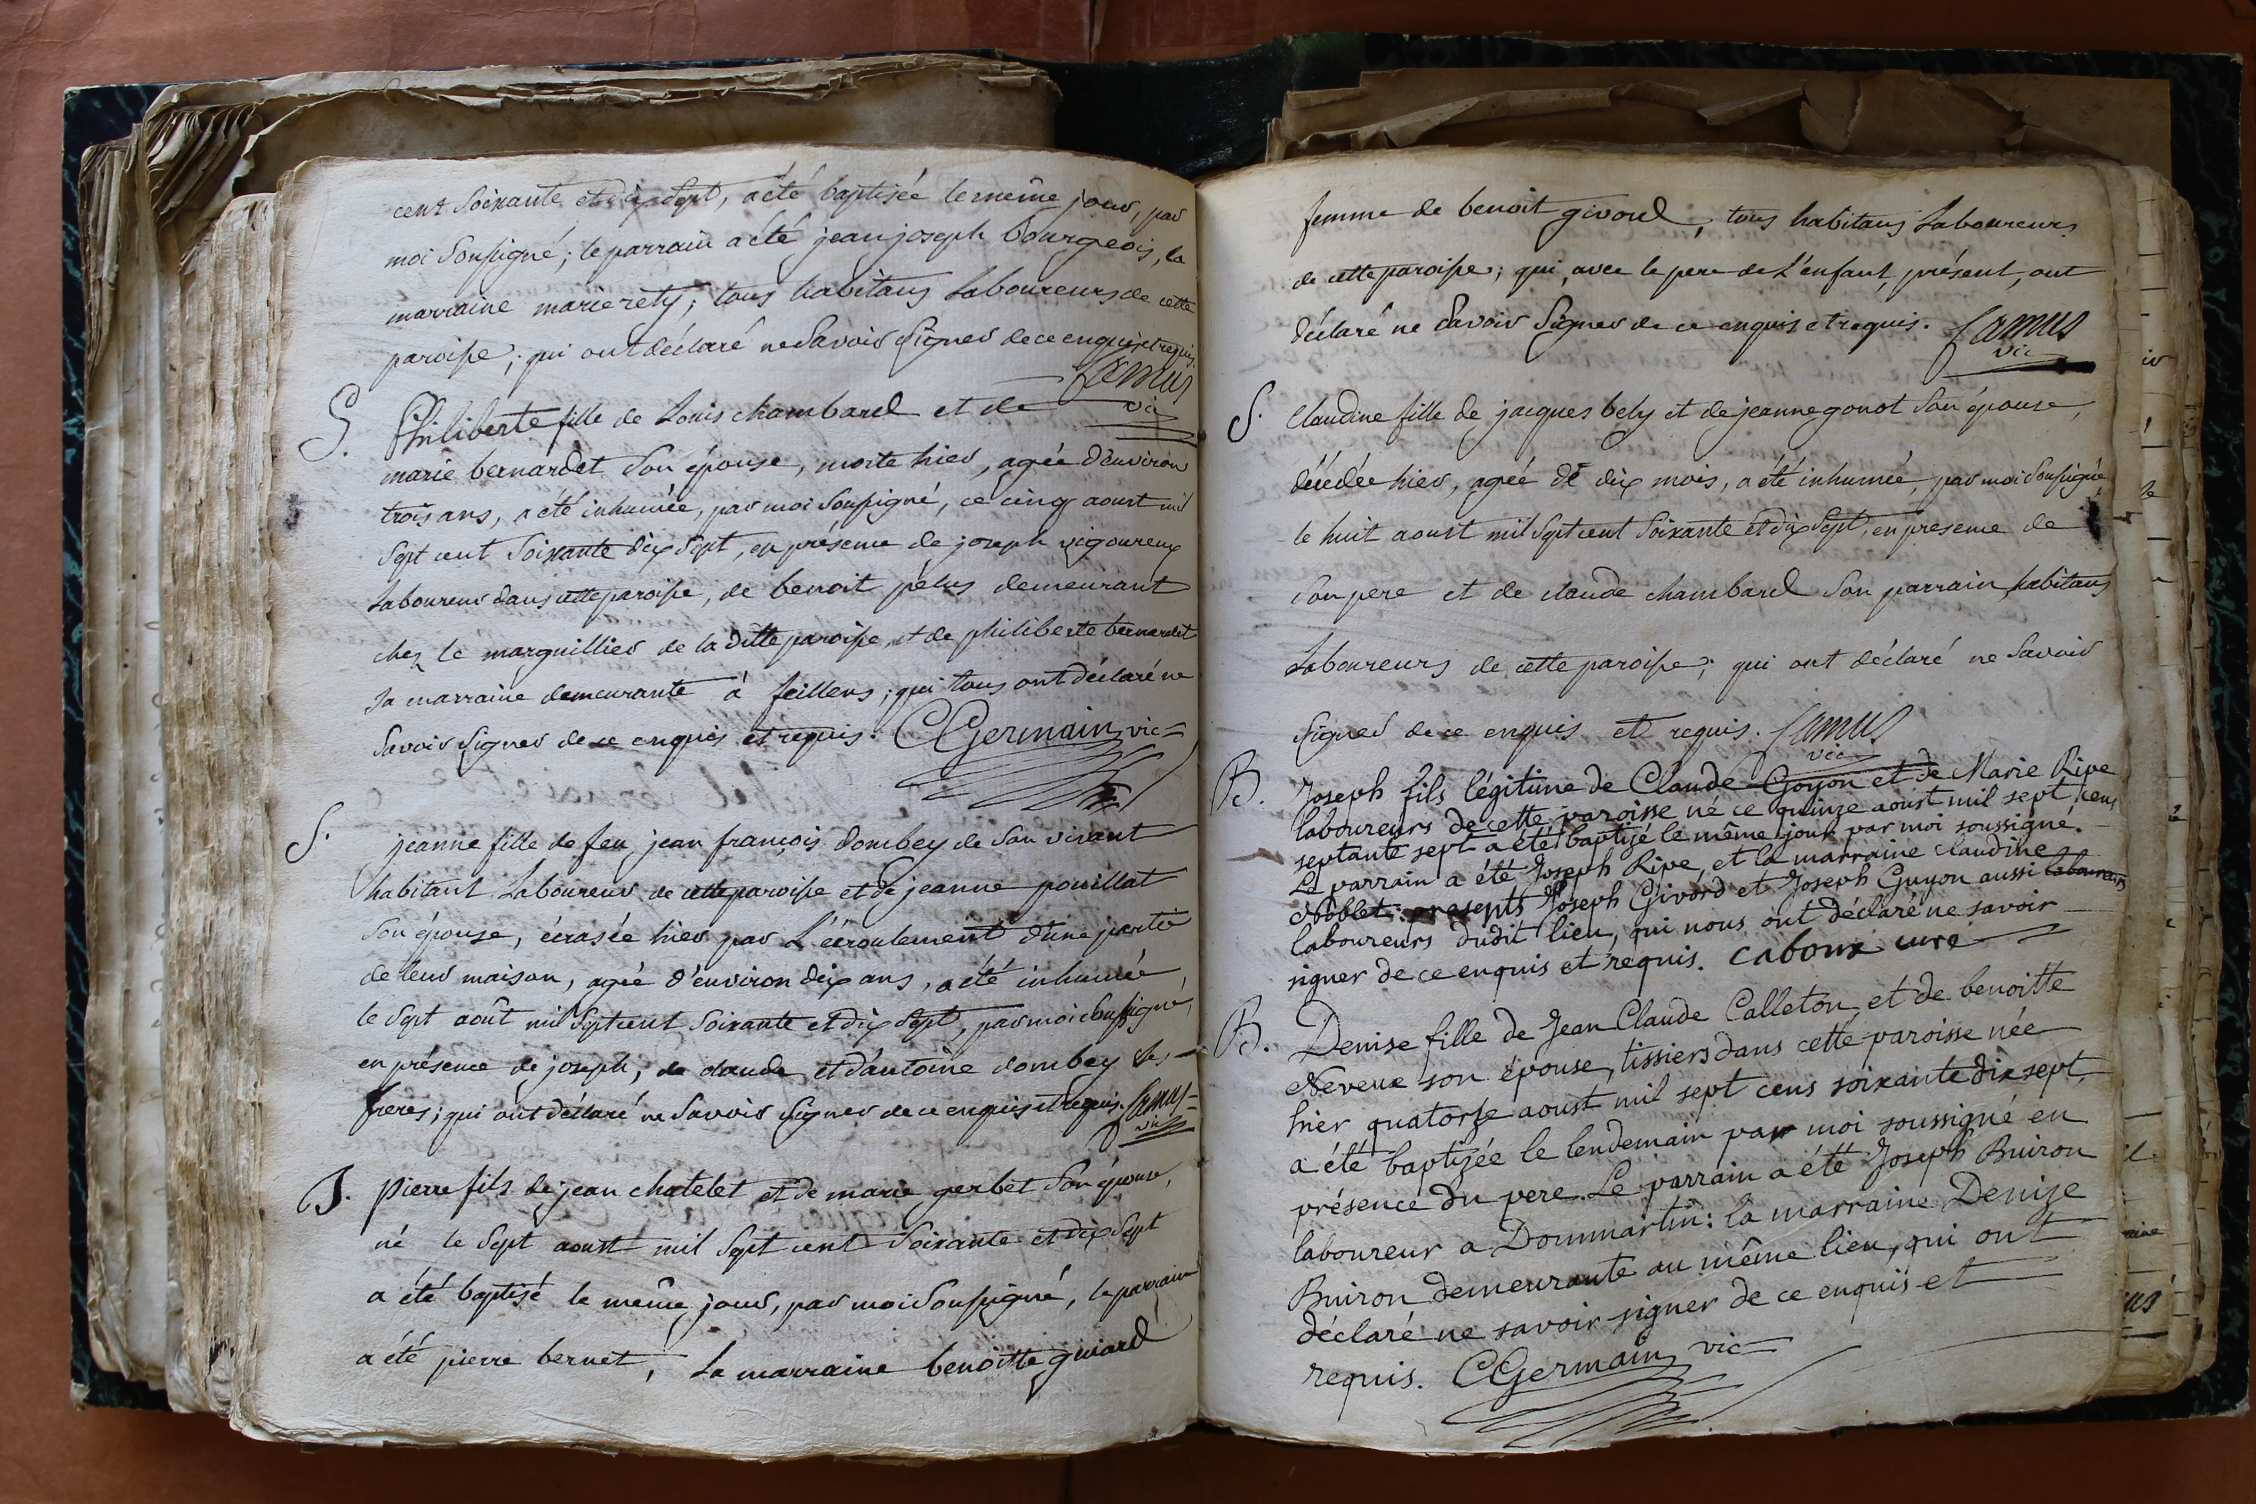 cent soixante et dix sept, a été baptisée le même jour, par
moi soussigné; le parrain a été jean joseph bourgeois, la
marraine marie rety; tous habitans Laboureurs de cette
paroisse; qui ont déclaré ne savoir signer de ce enquis et requis.
Camus
vic
S. Philiberte fille de Louis chambard et de
marie bernardet son épouse, morte hier, agée d'environ
trois ans, a été inhumée, par moi soussigné, ce cinq aoust mil
sept cent soixante dix sept, en présence de joseph vigoureux
Laboureur dans cette paroisse, de benoit pelus demeurant
chez le marguillier de la ditte paroisse, et de philiberte bernardet
sa marraine demeurante à feillens; qui tous ont déclaré ne
savoir signer de ce enquis et requis. CGermain vic
S. jeanne fille de feu jean françois dombey de son vivant
habitant Laboureur de cette paroisse et de jeanne pouillat
son épouse, écrasée hier par L'écroulement d'une partie
de leur maison, agée d'environ dix ans, a été inhumée
le sept août mil sept cent soixante et dix sept, par moi soussigné,
en présence de joseph, de claude et d'antoine dombey ses
freres; qui ont déclaré ne savoir signer de ce enquis et requis. Camus
vic
B. pierre fils de jean chatelet et de marie gerbet son épouse,
né le sept aoust mil sept cent soixante et dix sept
a été baptisé le même jour, par moi soussigné, le parrain
a été pierre bernet, La marraine benoitte guiard
femme de benoit givord, tous habitans Laboureurs
de cette paroisse; qui, avec le pere de L'enfant, présent, ont
déclaré ne savoir signer de ce enquis et requis. Camus
vic
S. Claudine fille de jacques bely et de jeanne gonot son épouse,
décédée hier, agée de dix mois, a été inhumée, par moi soussigné,
le huit aoust mil sept cent soixante et dix sept, en presence de
son pere et de claude chambard son parrain, habitans
Laboureurs de cette paroisse; qui ont déclaré ne savoir
signer de ce enquis et requis. Camus
vic
B. Joseph fils légitime de Claude Goyon et de Marie Rive
laboureurs de cette paroisse né ce quinze aoust mil sept cens
septante sept a été baptizé le même jour par moi soussigné.
Le parrain a été Joseph Rive, et la marraine claudine
Noblet: presents Joseph Givord et Joseph Guyon aussi laboureurs
laboureurs dudit lieu, qui nous ont déclaré ne savoir
signer de ce enquis et requis. Caboux curé
B. Denise fille de Jean Claude Calleton et de benoitte
Neveux son épouse, tissiers dans cette paroisse née
hier quatorze aoust mil sept cens soixante dix sept,
a été baptizée le lendemain par moi soussigné en
présence du pere. Le parrain a été Joseph Buiron
laboureur a Dommartin: la marraine Denize
Buiron demeurante au même lieu, qui ont
déclaré ne savoir signer de ce enquis et
requis. CGermain vic